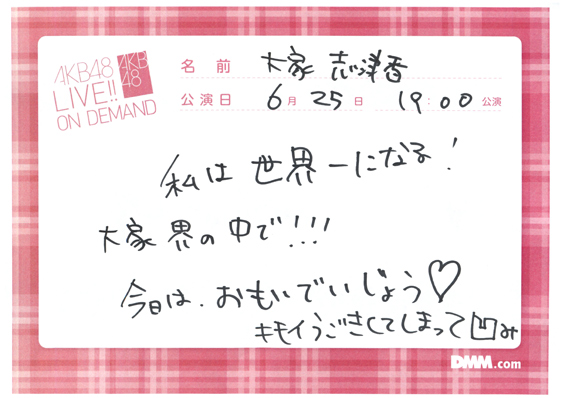 AKB48
LIVE!!
ON DEMAND
AKB
48
名前 大家 志津香
公演日 6月 25日 19:00 公演
私は 世界一になる!
大家 界の 中で!!!
今日は、おもいでいじょう♡
キモイうごきしてしまって凹み
DMM.com